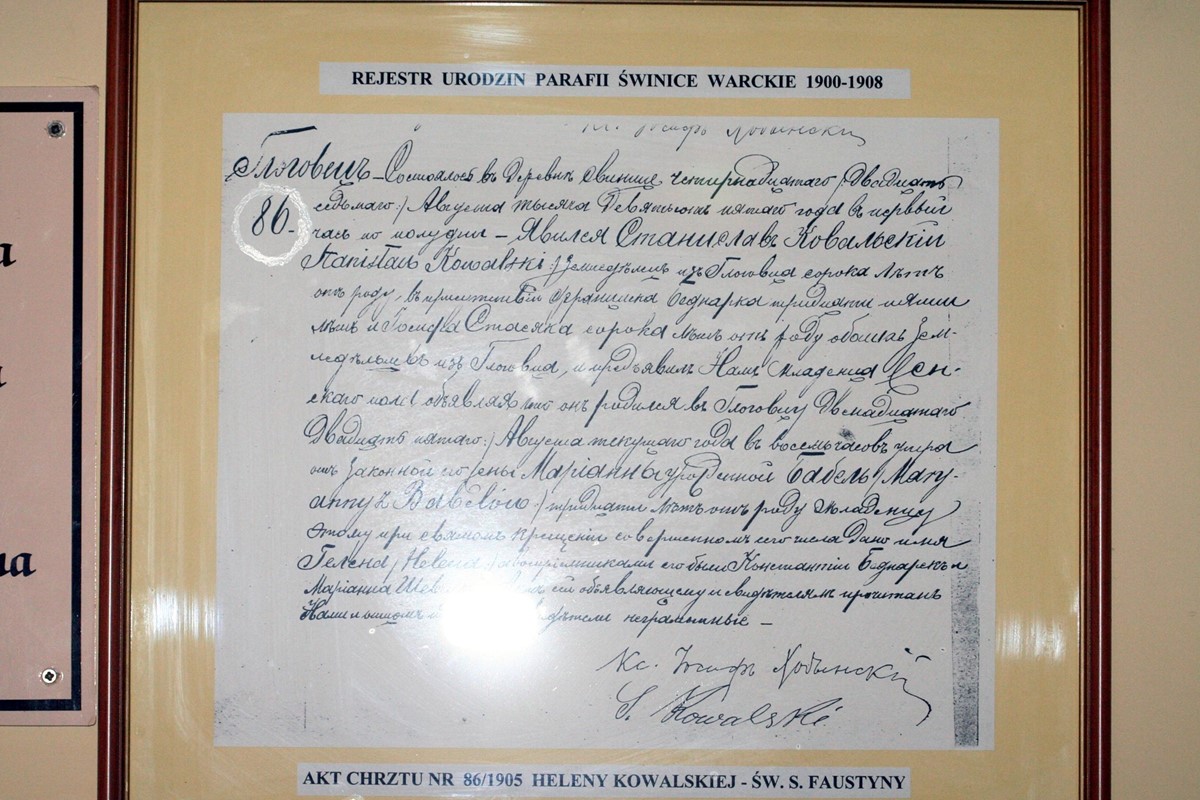 REJESTR URODZIN PARAFII ŚWINICE WARCKIE 1900-1908
Глоговецъ – Состоялось въ деревнѣ Свинице четырнадцатаго /: Двадцать
86. седьмаго :/ Августа тысяча девятьсотъ пятаго года въ первый
часъ по полудни – Явился Станиславъ Ковальскій
Stanisław Kowalski :/ земледѣлецъ изъ Глоговца сорока лѣтъ
отъ роду, въ присутствіи Франциска Беднарка тридцати пяти
лѣтъ и Іосифа Стасяка сорока лѣтъ отъ роду обоихъ зем-
ледѣльцевъ изъ Глоговца, и предъявилъ Намъ младенца Жен-
скаго пола объявляя что онъ родился въ Глоговцу двенадцатаго
Двадцать пятаго :/ Августа текущаго года въ восемь часовъ утра
отъ законной его жены Маріанны урожденной Бабель / Mary-
anny z Babelów :/ тридцати лѣтъ отъ роду младенцу
этому при святомъ крещеніи совершенномъ сего числа дано имя
Гелена / Helena а воспріемниками его были Константій Беднарекъ и
Маріанна сей объявляющему и свидѣтелямъ прочитанъ
Нами неграмотные –
Кс. Іосифъ Ходынскій
S. Kowalski
AKT CHRZTU NR 86/1905 HELENY KOWALSKIEJ - ŚW. S. FAUSTYNY
a
na